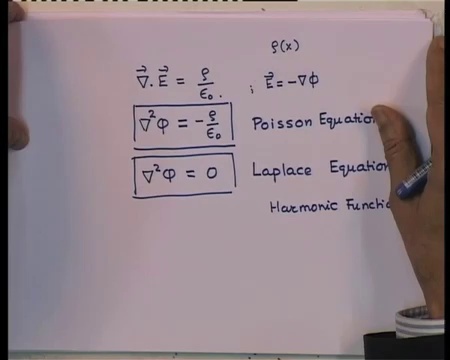 ρ(x)
∇⃗.E⃗ = ρ/ε₀. ; E⃗ = -∇Φ
∇²Φ = -ρ/ε₀ Poisson Equation
∇²Φ = 0 Laplace Equation
Harmonic Functio